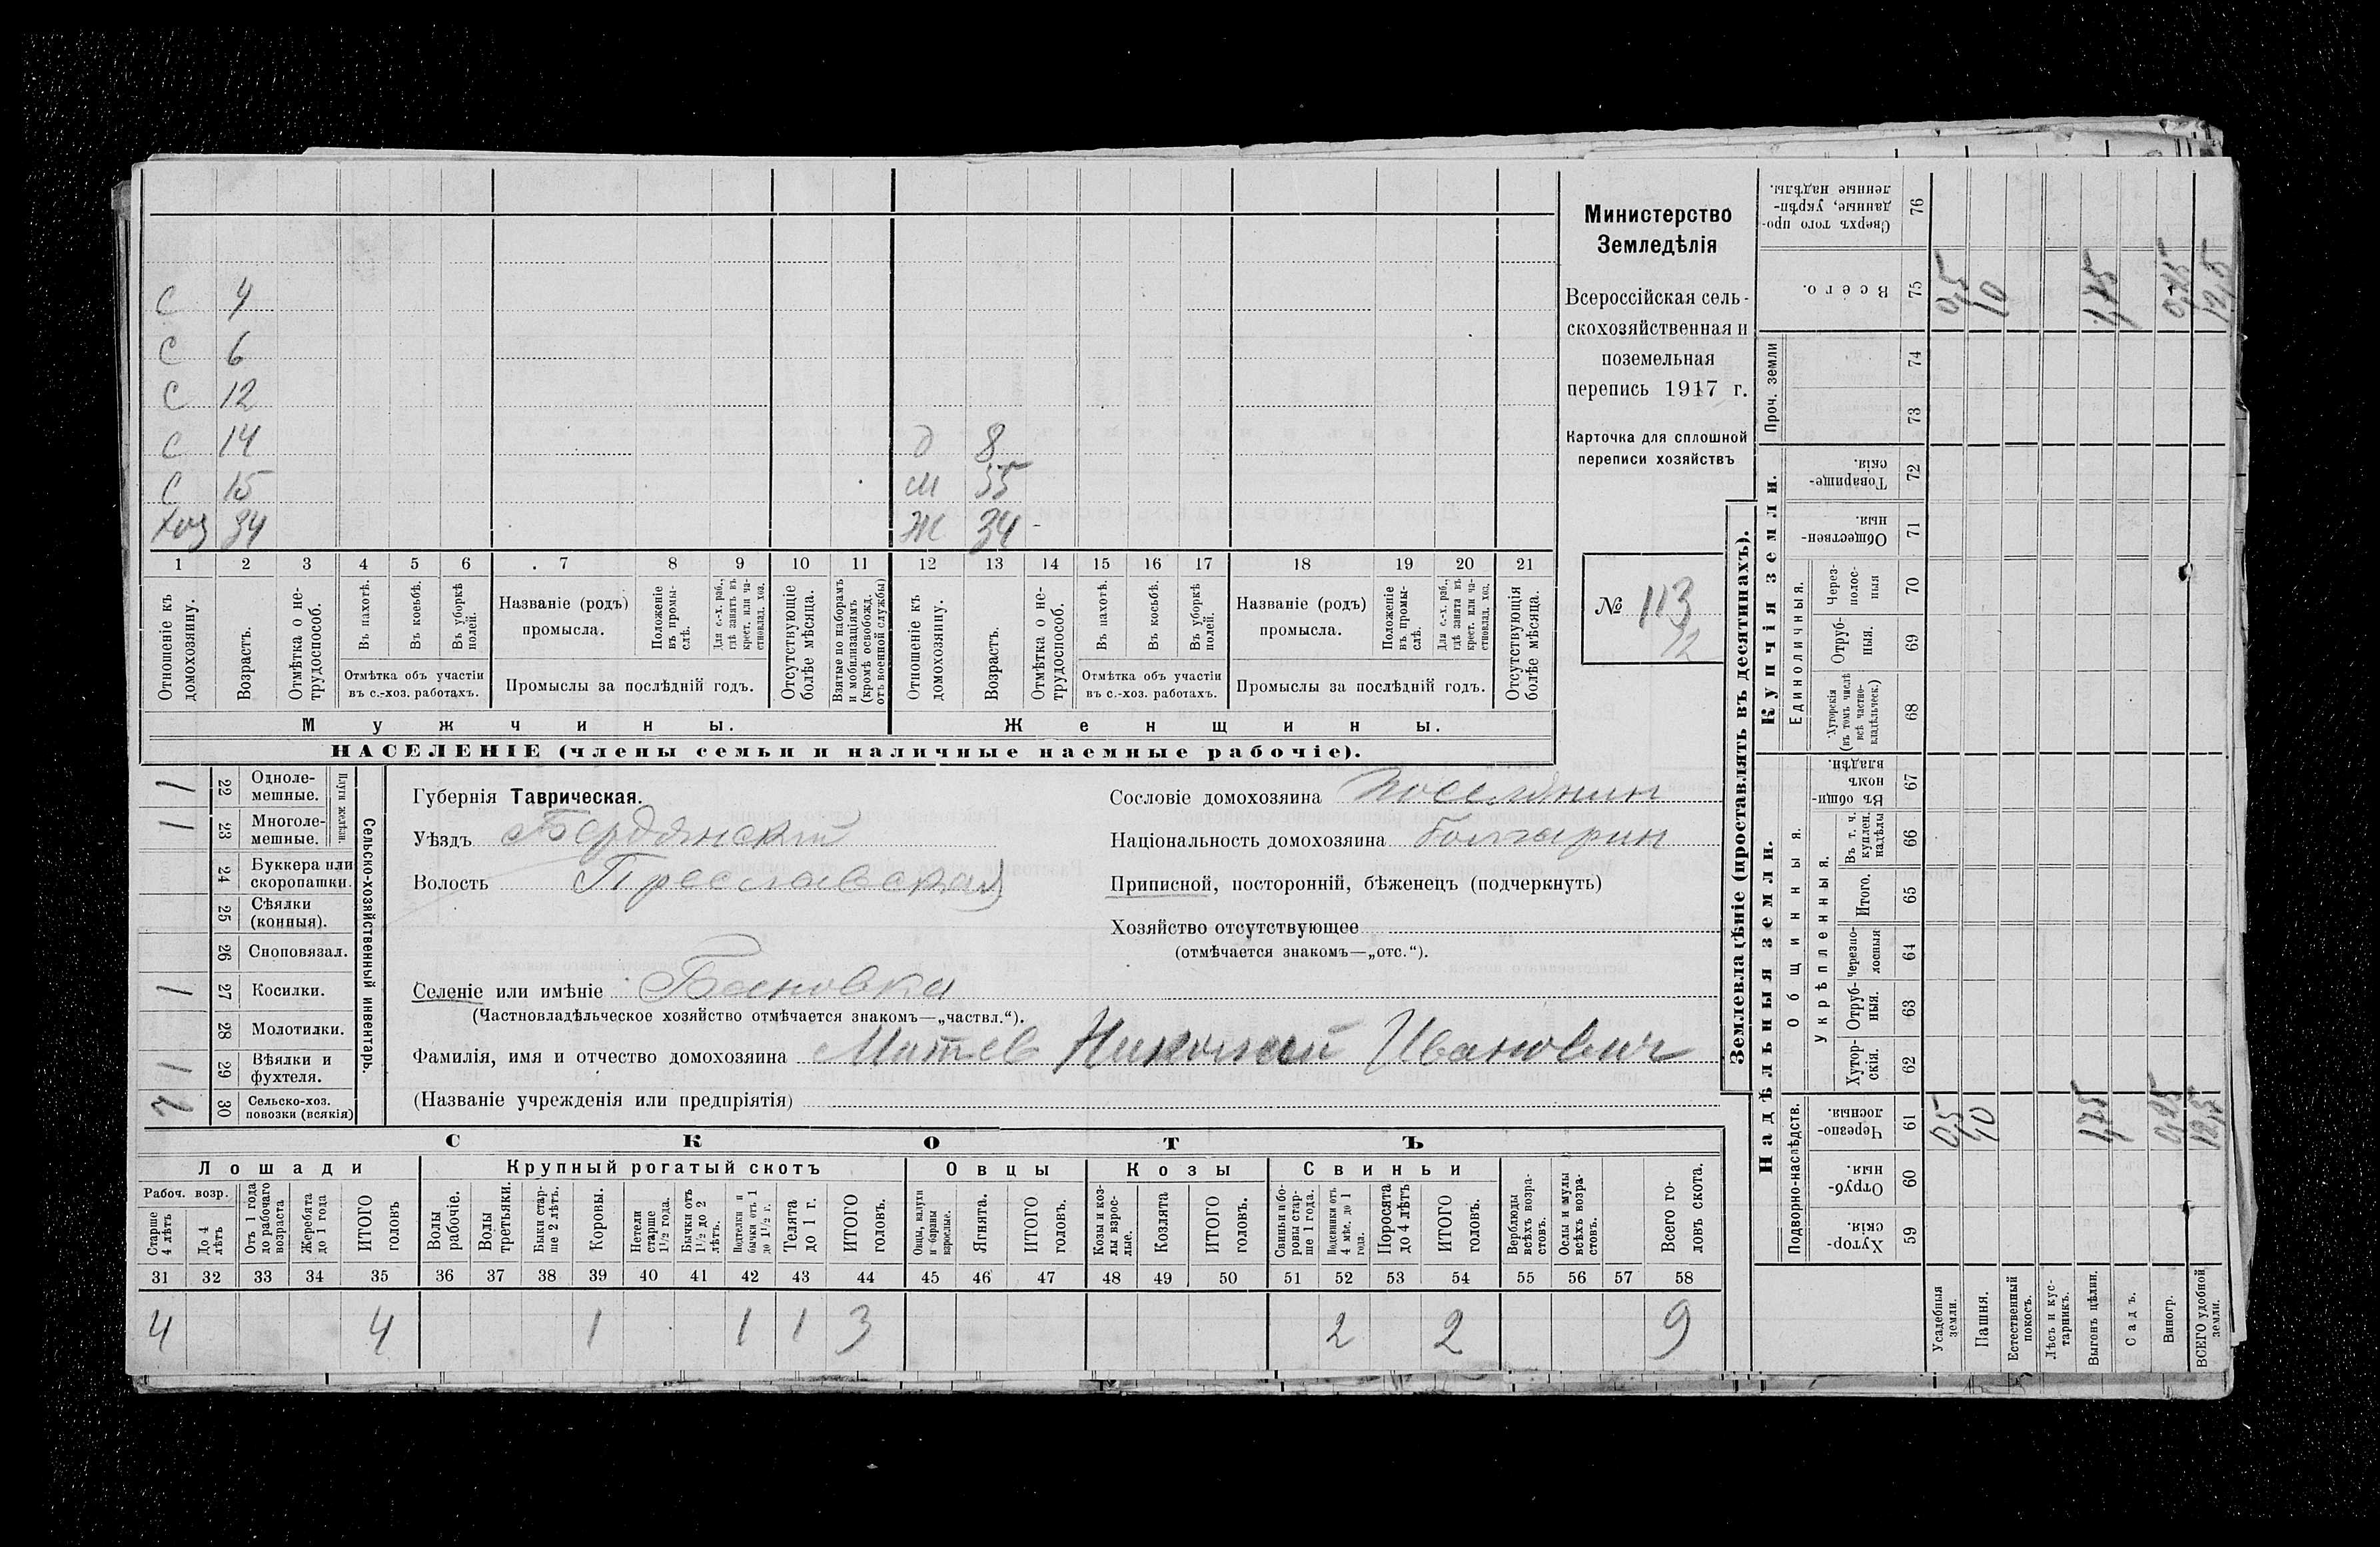 С 4
С 6
С 12
С 14 д 8
С 15 м 55
Хоз 34 Ж 34
1 2 3 4 5 6 7 8 9 10 11 12 13 14 15 16 17 18 19 20 21
Отношеніе къ домохозяину.
Возрастъ.
Отмѣтка о не-трудоспособ.
Въ пахотѣ.
Въ косьбѣ.
Въ уборкѣ полей.
Отмѣтка объ участіи въ с.-хоз. работахъ.
Названіе (родъ) промысла.
Положеніе въ промы-слѣ.
Для с.-х. раб., гдѣ занятъ въ крест. или ча-стновлад. хоз.
Промыслы за послѣдній годъ.
Отсутствующіе болѣе мѣсяца.
Взятые по наборамъ и мобилизаціямъ (кромѣ освобожд. отъ военной службы)
Отношеніе къ домохозяину.
Возрастъ.
Отмѣтка о не-трудоспособ.
Въ пахотѣ.
Въ косьбѣ.
Въ уборкѣ полей.
Отмѣтка объ участіи въ с.-хоз. работахъ.
Названіе (родъ) промысла.
Положеніе въ промы-слѣ.
Для с.-х. раб., гдѣ занята въ крест. или ча-стновлад. хоз.
Промыслы за послѣдній годъ.
Отсутствующія болѣе мѣсяца.
Мужчины. Женщины.
НАСЕЛЕНІЕ (члены семьи и наличные наемные рабочіе).
Министерство
Земледѣлія
Всероссійская сель-
скохозяйственная и
поземельная
перепись 1917 г.
Карточка для сплошной
переписи хозяйствъ
№ 113
12
Сельско-хозяйственный инвентарь.
Плуги желѣзн.
1 22 Одноле-мешные.
1 23 Многоле-мешные.
24 Буккера или скоропашки.
25 Сѣялки (конныя).
26 Сноповязал.
1 27 Косилки.
28 Молотилки.
1 29 Вѣялки и фухтеля.
2 30 Сельско-хоз. повозки (всякія)
Губернія Таврическая.
Уѣздъ Бердянский
Волость Преславская
Селеніе или имѣніе Бановка
(Частновладѣльческое хозяйство отмѣчается знакомъ—„частвл.“).
Фамилія, имя и отчество домохозяина Митев Николай Иванович
(Названіе учрежденія или предпріятія)
Сословіе домохозяина поселянин
Національность домохозяина болгарин
Приписной, посторонній, бѣженецъ (подчеркнуть)
Хозяйство отсутствующее
(отмѣчается знакомъ—„отс.“).
СКОТЪ
Лошади Крупный рогатый скотъ Овцы Козы Свиньи
Рабоч. возр.
Старше 4 лѣтъ
До 4 лѣтъ
Отъ 1 года до рабочаго возраста
Жеребята до 1 года
ИТОГО головъ
Волы рабочіе.
Волы третьяки.
Быки стар-ше 2 лѣтъ.
Коровы.
Нетели старше 1½ года.
Бычки отъ 1½ до 2 лѣтъ.
Подтелки и бычки отъ 1 до 1½ г.
Телята до 1 г.
ИТОГО головъ.
Овцы, валухи и бараны взрослые.
Ягнята.
ИТОГО головъ.
Козы и коз-лы взрос-лые.
Козлята
ИТОГО головъ.
Свиньи и бо-ровы стар-ше 1 года.
Подсвинки отъ 4 мѣс. до 1 года.
Поросята до 4 лѣтъ
ИТОГО головъ.
Верблюды всѣхъ возра-стовъ.
Ослы и мулы всѣхъ возра-стовъ.
Всего го-ловъ скота.
31 32 33 34 35 36 37 38 39 40 41 42 43 44 45 46 47 48 49 50 51 52 53 54 55 56 57 58
4 4 1 1 1 3 2 2 9
Землевладѣніе (проставлять въ десятинахъ).
Надѣльныя земли. Купчія земли. Проч. земли
Подворно-наслѣдств.
Общинныя.
Укрѣпленныя.
Единоличныя.
Хутор-скія. 59
Отруб-ныя. 60
Черезпо-лосныя. 61
Хутор-скія. 62
Отруб-ныя. 63
Черезпо-лосныя 64
Итого. 65
Въ т. ч. куплен. надѣлы 66
Въ общин-номъ владѣн. 67
Хуторскія (въ томъ числѣ всѣ частно-владѣльческ.) 68
Отруб-ныя. 69
Через-полос-ныя 70
Обществен-ныя. 71
Товарище-скія. 72
73
74
Всего. 75
Сверхъ того про-данные, укрѣп-ленные надѣлы. 76
Усадебныя земли. 0,5 0,5
Пашня. 10 10
Естественный покосъ.
Лѣсъ и кус-тарникъ.
Выгонъ цѣлин. 1,75 1,75
Садъ.
Виногр. 0,25 0,25
ВСЕГО удобной земли. 12,5 12,5